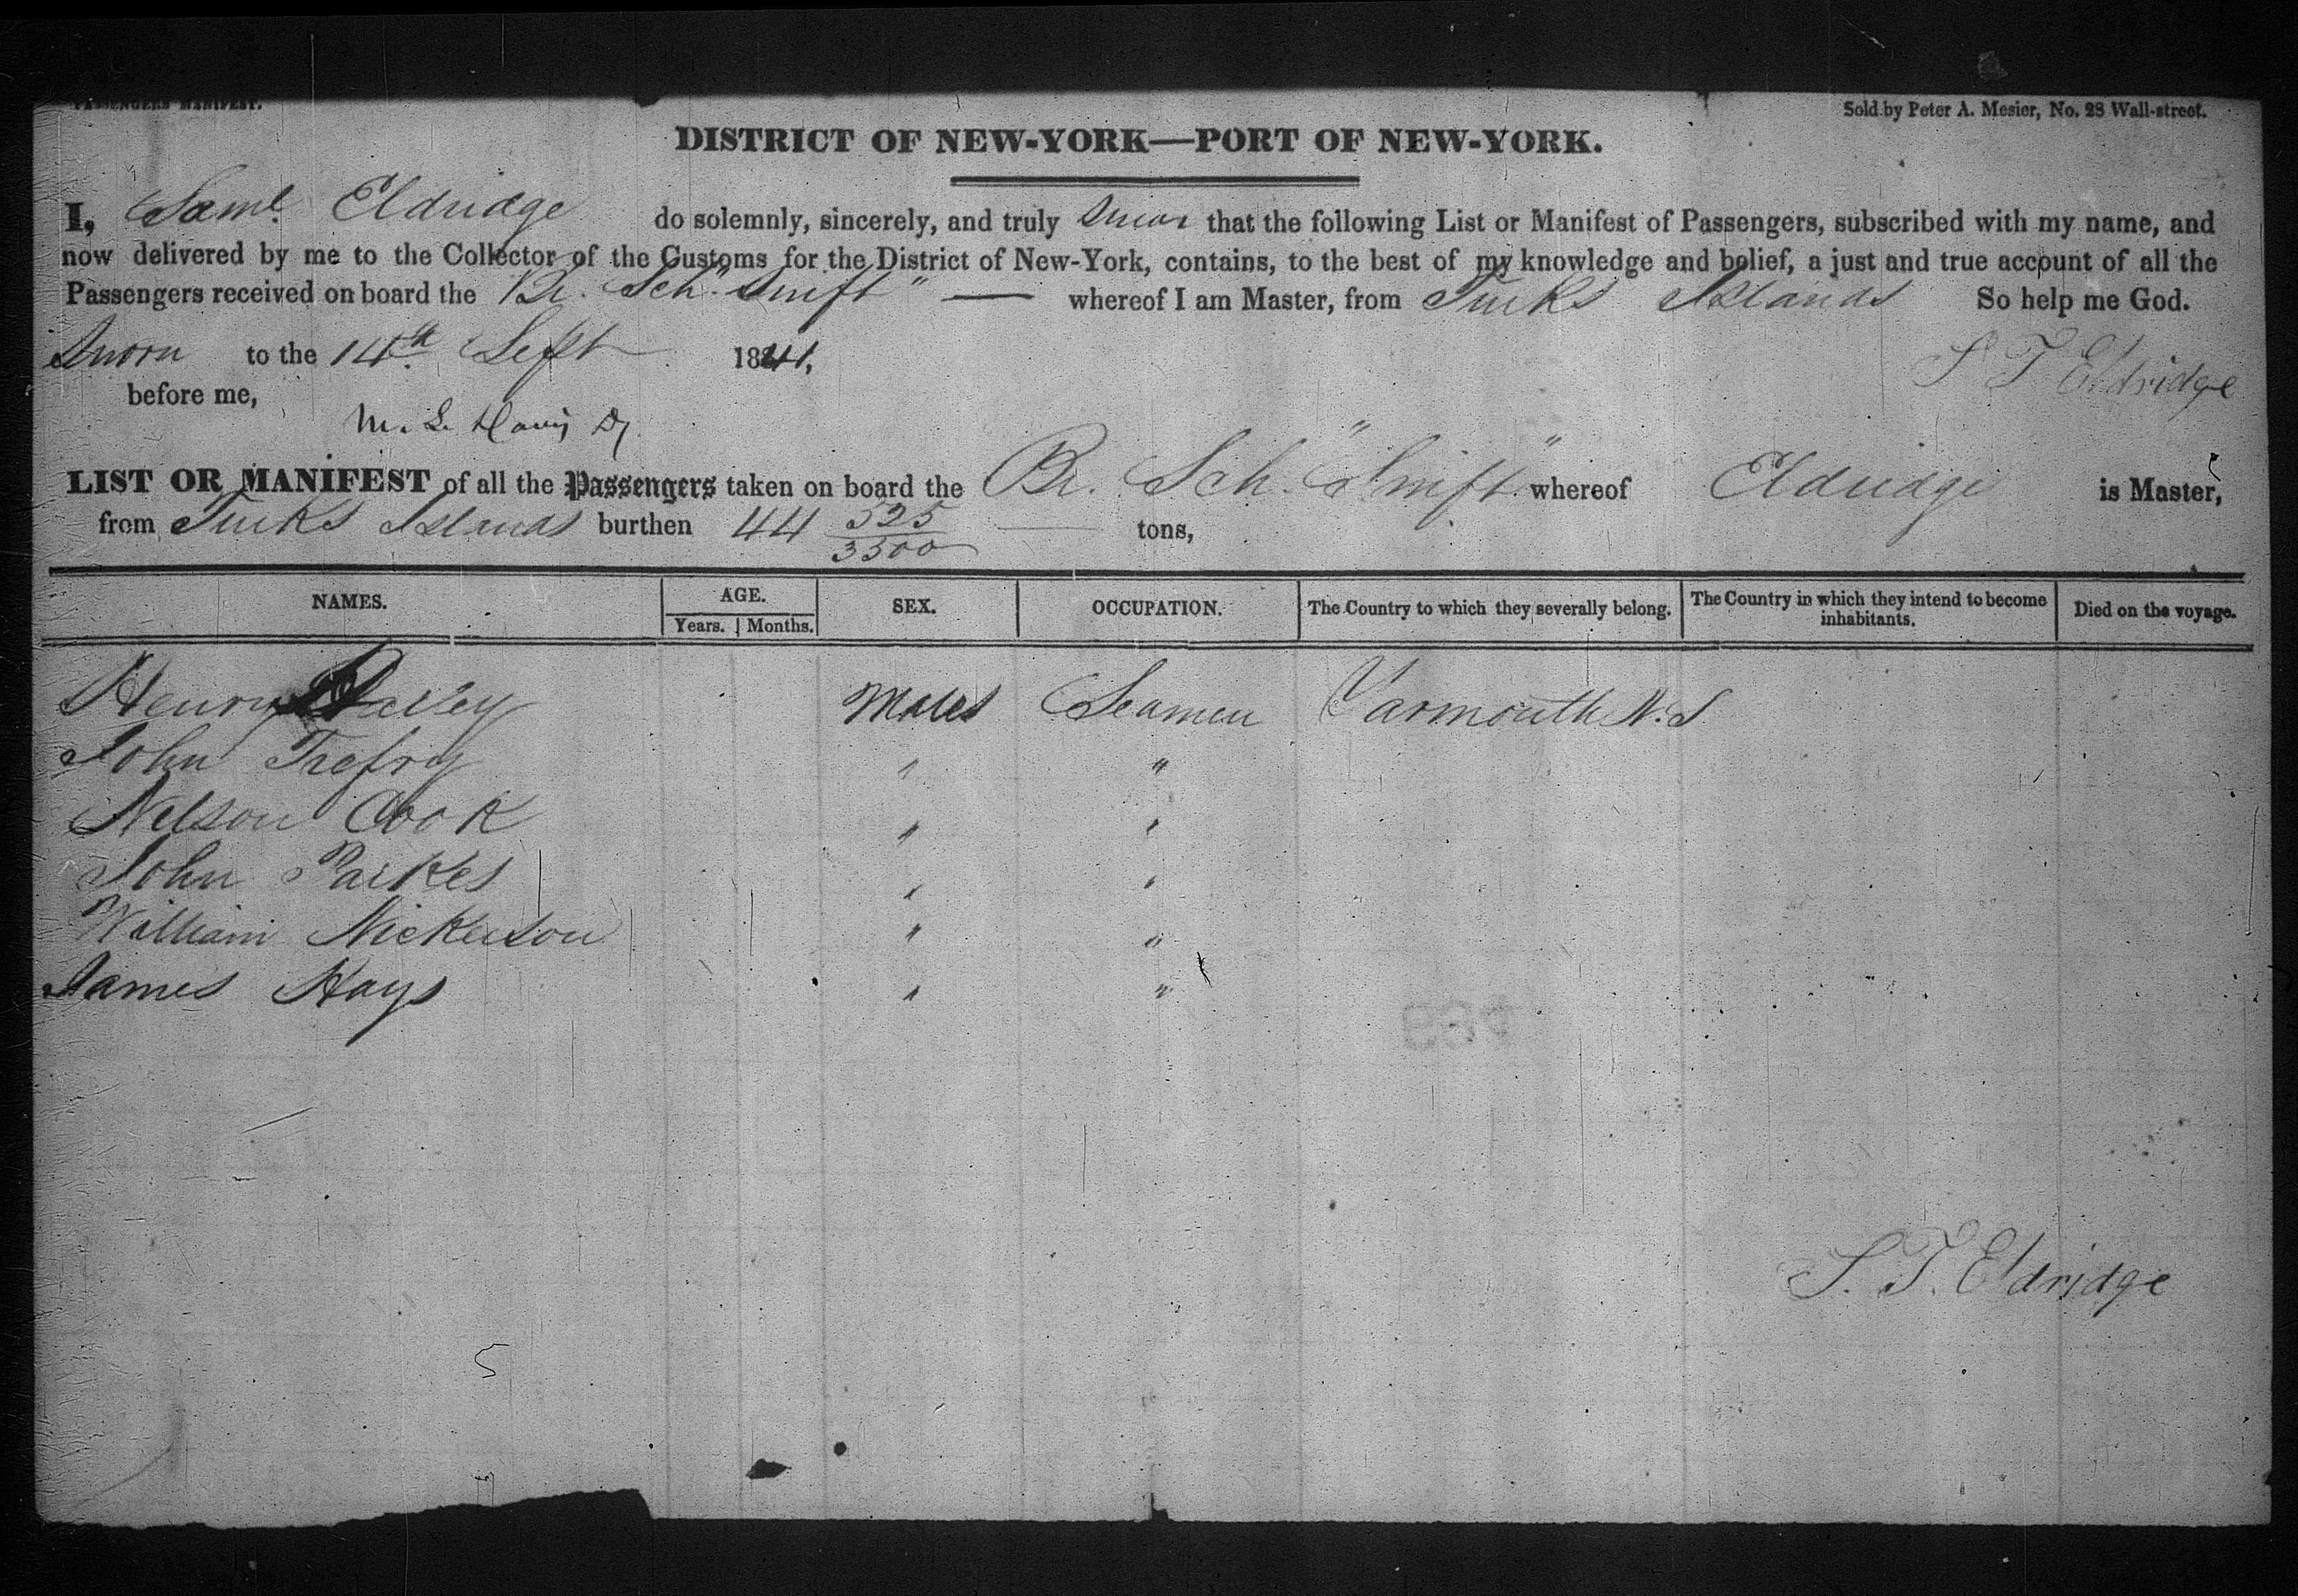 PASSENGERS MANIFEST.
Sold by Peter A. Mesier, No. 28 Wall-street.
DISTRICT OF NEW-YORK—PORT OF NEW-YORK.
I, Saml. Eldridge do solemnly, sincerely, and truly Swear that the following List or Manifest of Passengers, subscribed with my name, and
now delivered by me to the Collector of the Customs for the District of New-York, contains, to the best of my knowledge and belief, a just and true account of all the
Passengers received on board the Br. Sch. "Swift" — whereof I am Master, from Turks Islands So help me God.
Sworn to the 14th Sept 1841,
S T Eldridge
before me,
M. L. Davis Dy
LIST OR MANIFEST of all the Passengers taken on board the Br. Sch. "Swift" whereof Eldridge is Master,
from Turks Islands burthen 44 525/3500 tons,
NAMES. AGE. SEX. OCCUPATION. The Country to which they severally belong. The Country in which they intend to become inhabitants. Died on the voyage.
Years. Months.
Henry Males Seamen Yarmouth N.S
John Trefry " "
Nelson Cook " "
John Parker " "
William Nickerson " "
James Hays " "
S. T. Eldridge
5